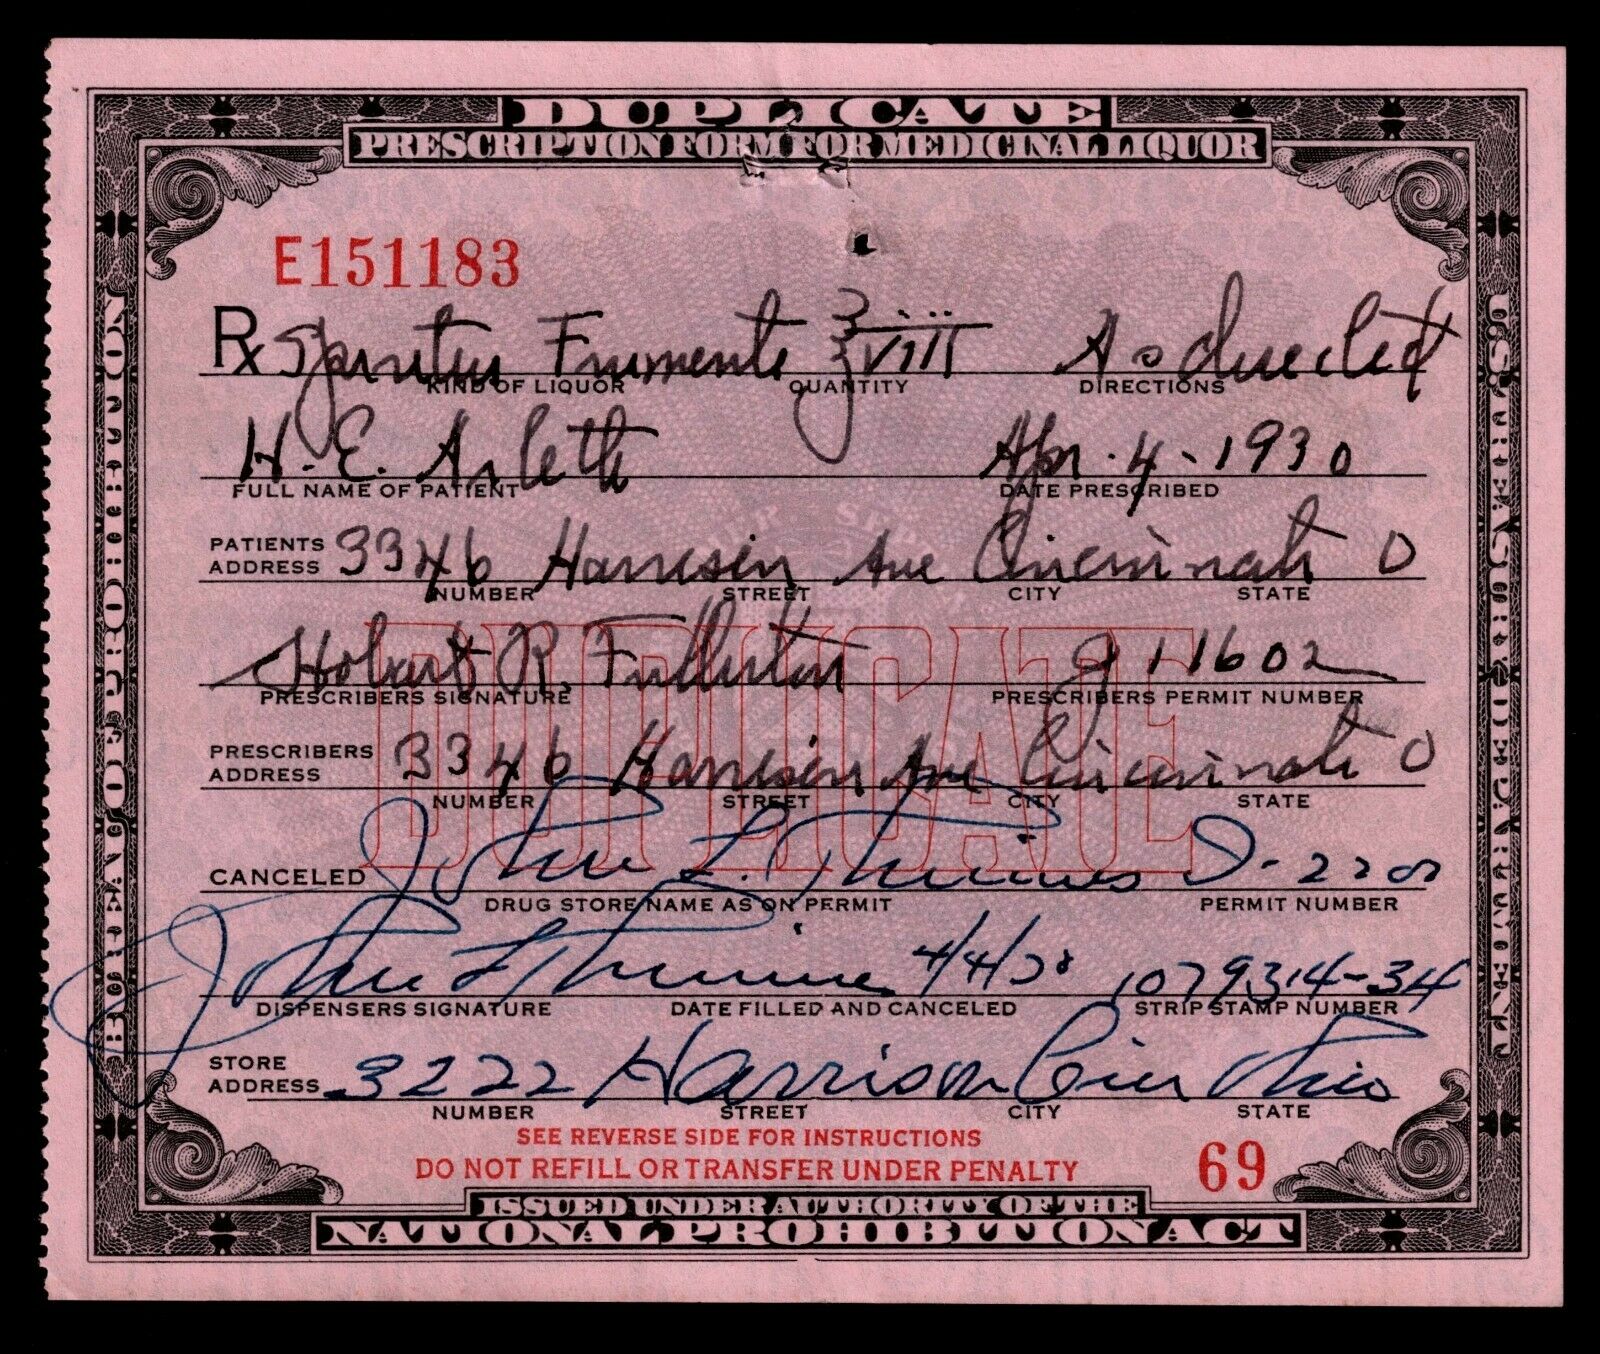 DUPLICATE
PRESCRIPTION FORM FOR MEDICINAL LIQUOR
E151183
Rx Spiritus Frumenti ʒviii As directed
KIND OF LIQUOR QUANTITY DIRECTIONS
H. E. Arleth Apr. 4 - 1930
FULL NAME OF PATIENT DATE PRESCRIBED
PATIENTS ADDRESS 3346 Harrison Ave Cincinnati O
NUMBER STREET CITY STATE
Hobart R. Fullerton 11602
PRESCRIBERS SIGNATURE PRESCRIBERS PERMIT NUMBER
PRESCRIBERS ADDRESS 3346 Harrison Ave Cincinnati O
NUMBER STREET CITY STATE
DUPLICATE
CANCELED John L.
DRUG STORE NAME AS ON PERMIT PERMIT NUMBER
John L 4/4/30 1079314-34
DISPENSERS SIGNATURE DATE FILLED AND CANCELED STRIP STAMP NUMBER
STORE ADDRESS 3222 Harrison Cin Ohio
NUMBER STREET CITY STATE
SEE REVERSE SIDE FOR INSTRUCTIONS
DO NOT REFILL OR TRANSFER UNDER PENALTY 69
ISSUED UNDER AUTHORITY OF THE
NATIONAL PROHIBITION ACT